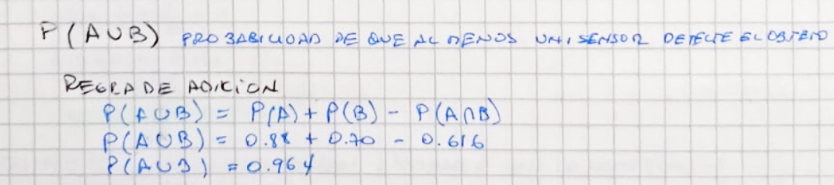 P(A∪B) PROBABILIDAD DE QUE AL MENOS UN SENSOR DETECTE EL OBJETO
REGLA DE ADICION
P(A∪B) = P(A) + P(B) - P(A∩B)
P(A∪B) = 0.88 + 0.70 - 0.616
P(A∪B) = 0.964